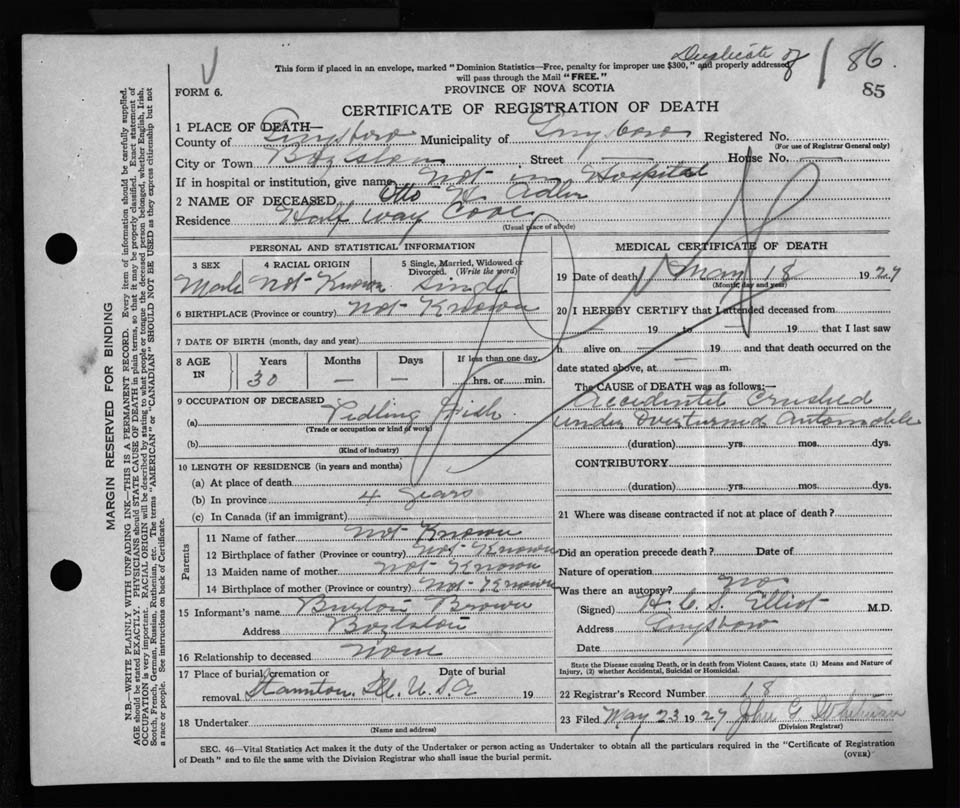 Duplicate of 86.
This form if placed in an envelope, marked "Dominion Statistics—Free, penalty for improper use $300," and properly addressed
will pass through the Mail "FREE."
FORM 6.
PROVINCE OF NOVA SCOTIA
85
CERTIFICATE OF REGISTRATION OF DEATH
1 PLACE OF DEATH—
County of Guysboro Municipality of Guysboro Registered No.
(For use of Registrar General only)
City or Town Boylston Street — House No. —
If in hospital or institution, give name Not in Hospital
2 NAME OF DECEASED Otto H. Adler
Residence Half Way Cove
(Usual place of abode)
PERSONAL AND STATISTICAL INFORMATION
3 SEX 4 RACIAL ORIGIN 5 Single, Married, Widowed or
Divorced. (Write the word)
Male Not Known Single
6 BIRTHPLACE (Province or country) Not Known
7 DATE OF BIRTH (month, day and year)
8 AGE IN Years Months Days If less than one day,
30 — — hrs. or min.
9 OCCUPATION OF DECEASED
(a) Pedling Fish
(Trade or occupation or kind of work)
(b)
(Kind of industry)
10 LENGTH OF RESIDENCE (in years and months)
(a) At place of death
(b) In province 4 years
(c) In Canada (if an immigrant)
Parents
11 Name of father Not Known
12 Birthplace of father (Province or country) Not Known
13 Maiden name of mother Not Known
14 Birthplace of mother (Province or country) Not Known
15 Informant's name Brown
Address Boylston
16 Relationship to deceased None
17 Place of burial, cremation or Date of burial
removal Staunton, Ill. U.S.A 19
18 Undertaker
(Name and address)
MEDICAL CERTIFICATE OF DEATH
19 Date of death May 18 1927
(Month, day and year)
20 I HEREBY CERTIFY that I attended deceased from
— 19 to — 19 that I last saw
h alive on — 19 and that death occurred on the
date stated above, at — m.
The CAUSE of DEATH was as follows:—
Accidental Crushed
under Overturned Automobile
(duration) yrs. mos. dys.
CONTRIBUTORY
(duration) yrs. mos. dys.
21 Where was disease contracted if not at place of death?
Did an operation precede death? Date of
Nature of operation
Was there an autopsy? No
(Signed) H. C. S. Elliot M.D.
Address Guysboro
Date
State the Disease causing Death, or in death from Violent Causes, state (1) Means and Nature of
Injury, (2) whether Accidental, Suicidal or Homicidal.
22 Registrar's Record Number 18
23 Filed May 23 1927 John G.
(Division Registrar)
SEC. 46—Vital Statistics Act makes it the duty of the Undertaker or person acting as Undertaker to obtain all the particulars required in the "Certificate of Registration
of Death" and to file the same with the Division Registrar who shall issue the burial permit.
(OVER)
MARGIN RESERVED FOR BINDING
N.B.—WRITE PLAINLY WITH UNFADING INK—THIS IS A PERMANENT RECORD. Every item of information should be carefully supplied.
AGE should be stated EXACTLY. PHYSICIANS should STATE CAUSE OF DEATH in plain terms, so that it may be properly classified. Exact statement of
OCCUPATION is very important. RACIAL ORIGIN will be described by stating to what people or tongue the deceased person belonged, whether English, Irish,
Scotch, French, German, Russian, Ruthenian, etc. The terms "AMERICAN" or "CANADIAN" SHOULD NOT BE USED as they express citizenship but not
a race or people. See instructions on back of Certificate.